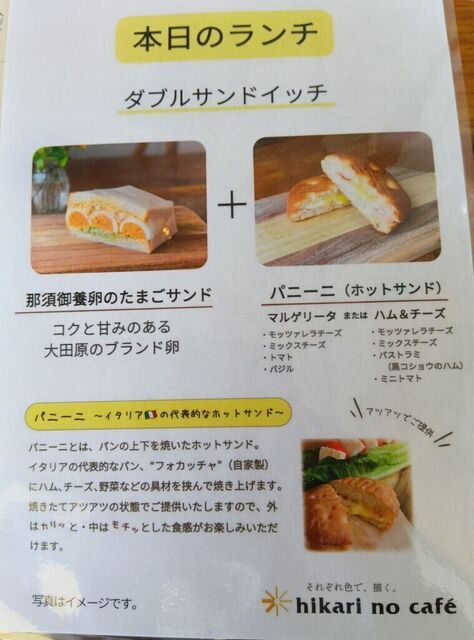 本日のランチ
ダブルサンドイッチ
+
那須御養卵のたまごサンド
コクと甘みのある
大田原のブランド卵
パニーニ（ホットサンド）
マルゲリータ または ハム＆チーズ
・モッツァレラチーズ
・ミックスチーズ
・トマト
・バジル
・モッツァレラチーズ
・ミックスチーズ
・パストラミ
（黒コショウのハム）
・ミニトマト
パニーニ ～イタリア🇮🇹の代表的なホットサンド～
アツアツでご提供
パニーニとは、パンの上下を焼いたホットサンド。
イタリアの代表的なパン、“フォカッチャ”（自家製）
にハム、チーズ、野菜などの具材を挟んで焼き上げます。
焼きたてアツアツの状態でご提供いたしますので、外
はカリッと・中はモチッとした食感がお楽しみいただ
けます。
写真はイメージです。
それぞれ色で、描く。
hikari no café